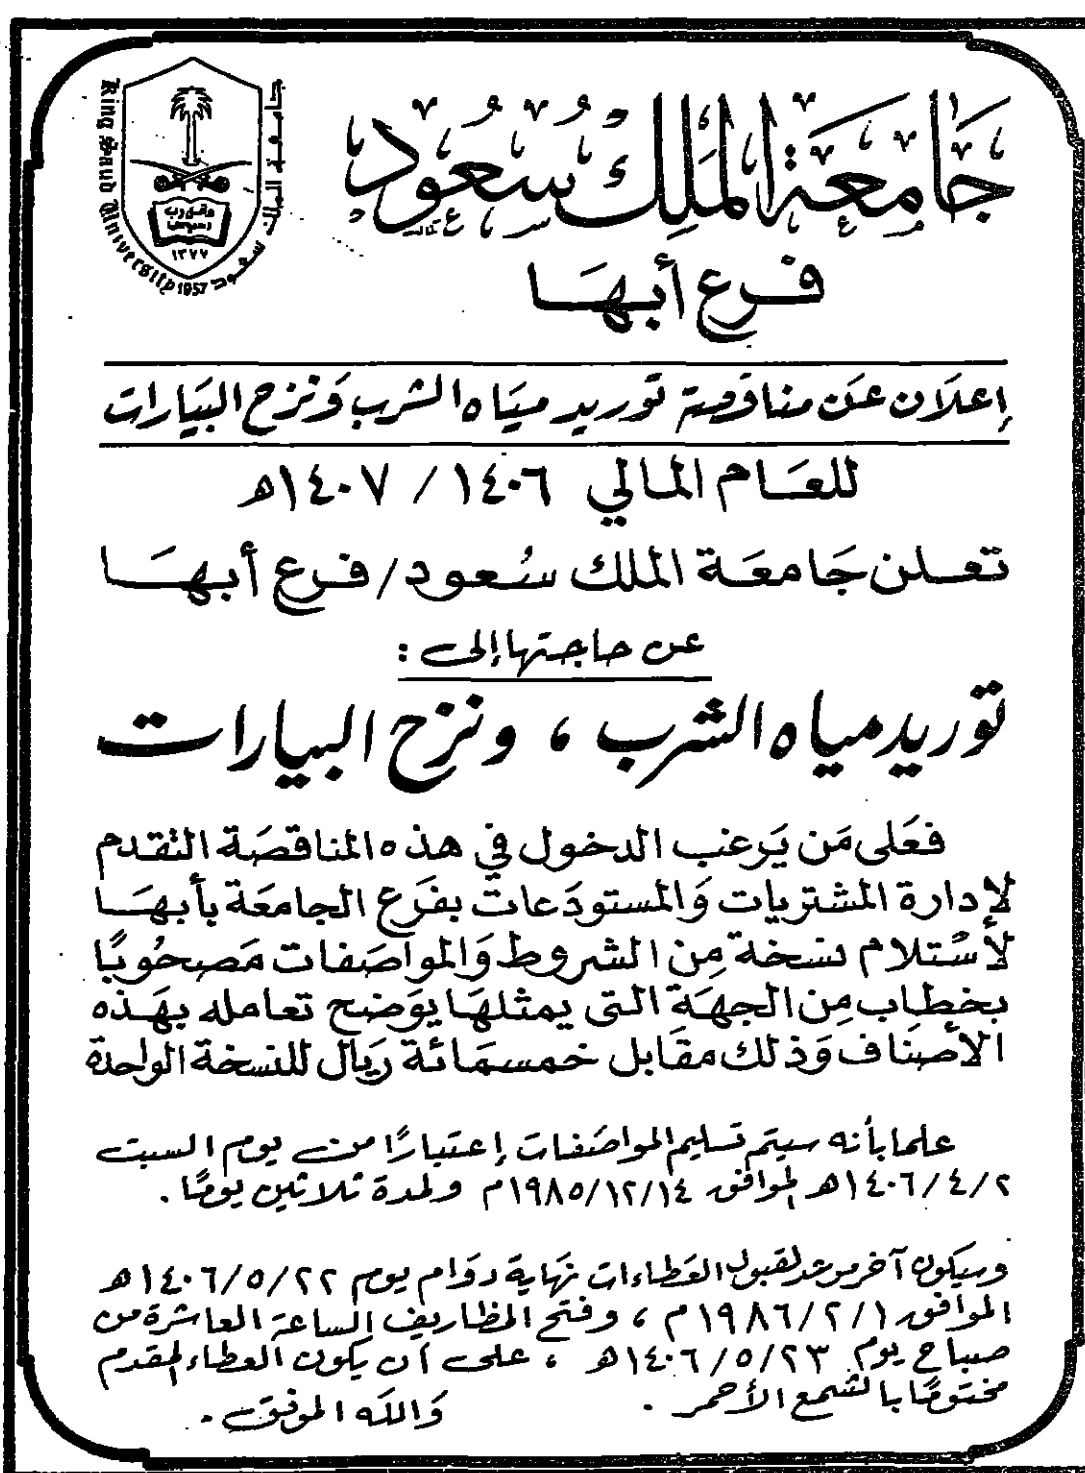 جامعة الملك سعود
King Saud University 1957
جامعة الملك سعود
١٣٧٧
فرع أبها
إعلان عن مناقصة توريد مياه الشرب ونزح البيارات
للعام المالي ١٤٠٦ / ١٤٠٧هـ
تعلن جامعة الملك سعود/فرع أبها
عن حاجتها إلى :
توريد مياه الشرب ، ونزح البيارات
فعلى من يرغب الدخول في هذه المناقصة التقدم
لإدارة المشتريات والمستودعات بفرع الجامعة بأبها
لأستلام نسخة من الشروط والمواصفات مصحوبًا
بخطاب من الجهة التي يمثلها يوضح تعامله بهذه
الأصناف وذلك مقابل خمسمائة ريال للنسخة الواحدة
علما بأنه سيتم تسليم المواصفات إعتبارًا من يوم السبت
١٤٠٦/٤/٢هـ الموافق ١٩٨٥/١٢/١٤م ولمدة ثلاثين يومًا .
وسيكون آخر موعد لقبول العطاءات نهاية دوام يوم ١٤٠٦/٥/٢٢هـ
الموافق ١٩٨٦/٢/١م ، وفتح المظاريف الساعة العاشرة من
صباح يوم ١٤٠٦/٥/٢٣هـ ، على أن يكون العطاء المقدم
مختومًا بالشمع الأحمر . والله الموفق .